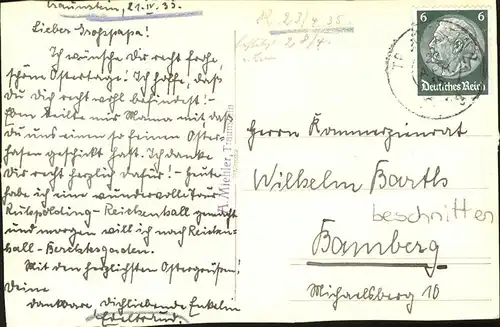 Traunstein, 21.IV.35.
Lieber Großpapa!
Ich wünsche Dir recht frohe,
schöne Ostertage! Ich hoffe, daß
Du dich recht wohl befindest! –
Eben teilte mir Mama mit daß
Du uns einen so feinen Oster-
hasen geschickt hast. Ich danke
Dir recht herzlich dafür! – Heute
habe ich eine wundervolle Tour
Ruhpolding – Reichenhall gemacht
und morgen will ich nach Reichen-
hall – Berchtesgaden.
Mit den herzlichsten Ostergrüßen!
Deine
dankbare, Dich liebende Enkelin
23/4 35.
28/4.
A. Miehler, Traunstein
6 6
Deutsches Reich
Herrn Kommerzienrat
Wilhelm Barths
beschnitten
Bamberg
Michaelsberg 10